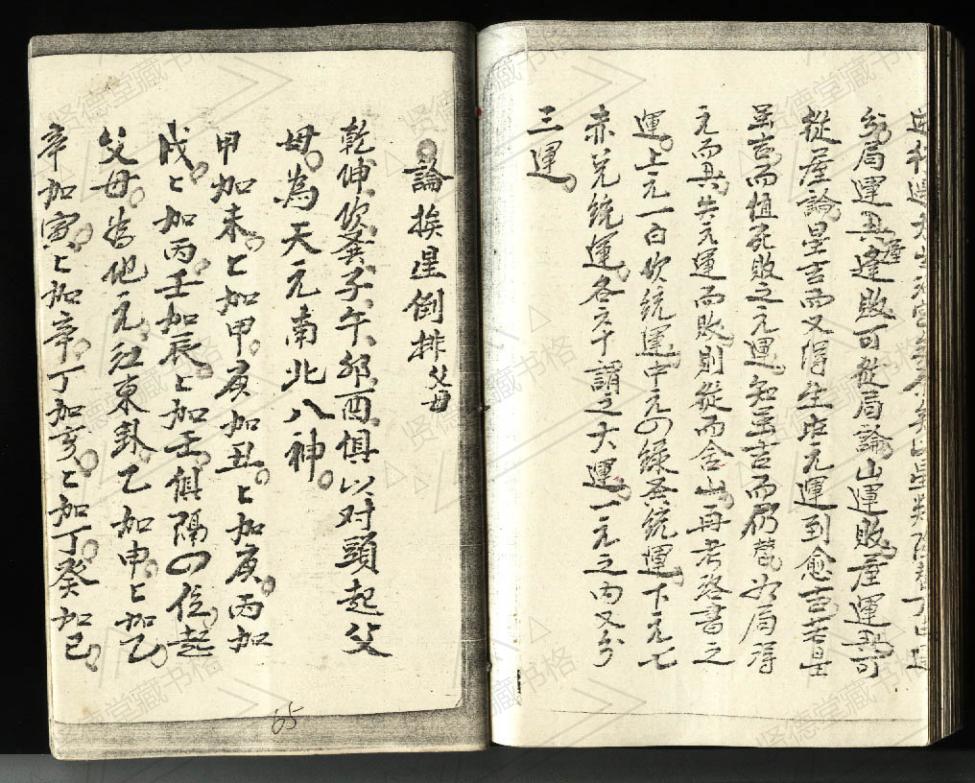 分局運與逢敗可從局論山運敗座運與可
從座論星吉而又得生旺元運到愈吉若星
虽吉而值死敗之元運知虽吉而仍替如局得
元而與失元運而敗則從而舍山再考洛書之
運上元一白坎統運中元四綠巽統運下元七
赤兌統運各六十謂之大運一元之內又分
三運
論挨星倒排父母
乾伸坎巽子午卯酉俱以对頭起父
母為天元南北八神
甲加未匕加甲庚加丑匕加庚丙加
戌匕加丙壬加辰匕加壬俱隔四位起
父母為地元江東卦乙加申匕加乙
辛加寅匕加辛丁加亥匕加丁癸加巳
65
贤德堂藏书格